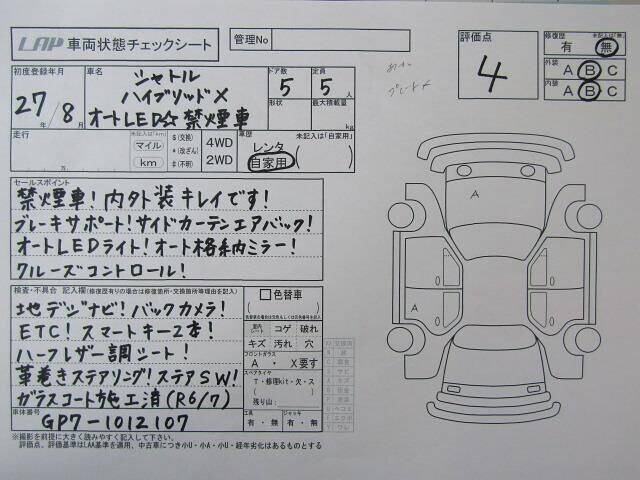 LAP 車両状態チェックシート
管理No
評価点
4
修復歴 未記入は「無」
有 無
外装
A B C
内装
A B C
初度登録年月
27年/8月
車名
シャトル
ハイブリッドX
オートLED☆禁煙車
ドア数
5
定員
5人
形状
最大積載量
kg
走行
未記入は「km」
マイル
km
$(交換)
*(改ざん)
#(不明)
4WD
2WD
車歴 未記入は「自家用」
レンタ
自家用
セールスポイント
禁煙車!内外装キレイです!
ブレーキサポート!サイドカーテンエアバック!
オートLEDライト!オート格納ミラー!
クルーズコントロール!
検査・不具合 記入欄(修復歴有りの場合は修復箇所・交換箇所等理由を記入)
地デジナビ!バックカメラ!
ETC!スマートキー2本!
ハーフレザー調シート!
革巻きステアリング!ステアSW!
ガラスコート施工済(R6/7)
色替車
室内
シート
コゲ 破れ
キズ 汚れ 穴
フロントガラス
A ・ X要す
スペアタイヤ
T・修理kit・欠・ス
残り山:
工具
有・無
ジャッキ
有・無
車体番号
GP7-1012107
※撮影を前提に大きく読みやすく記入して下さい。
評価点、評価基準はLAA基準を適用、中古車につき小U・小A・小U・経年劣化はあるものとする
A
A